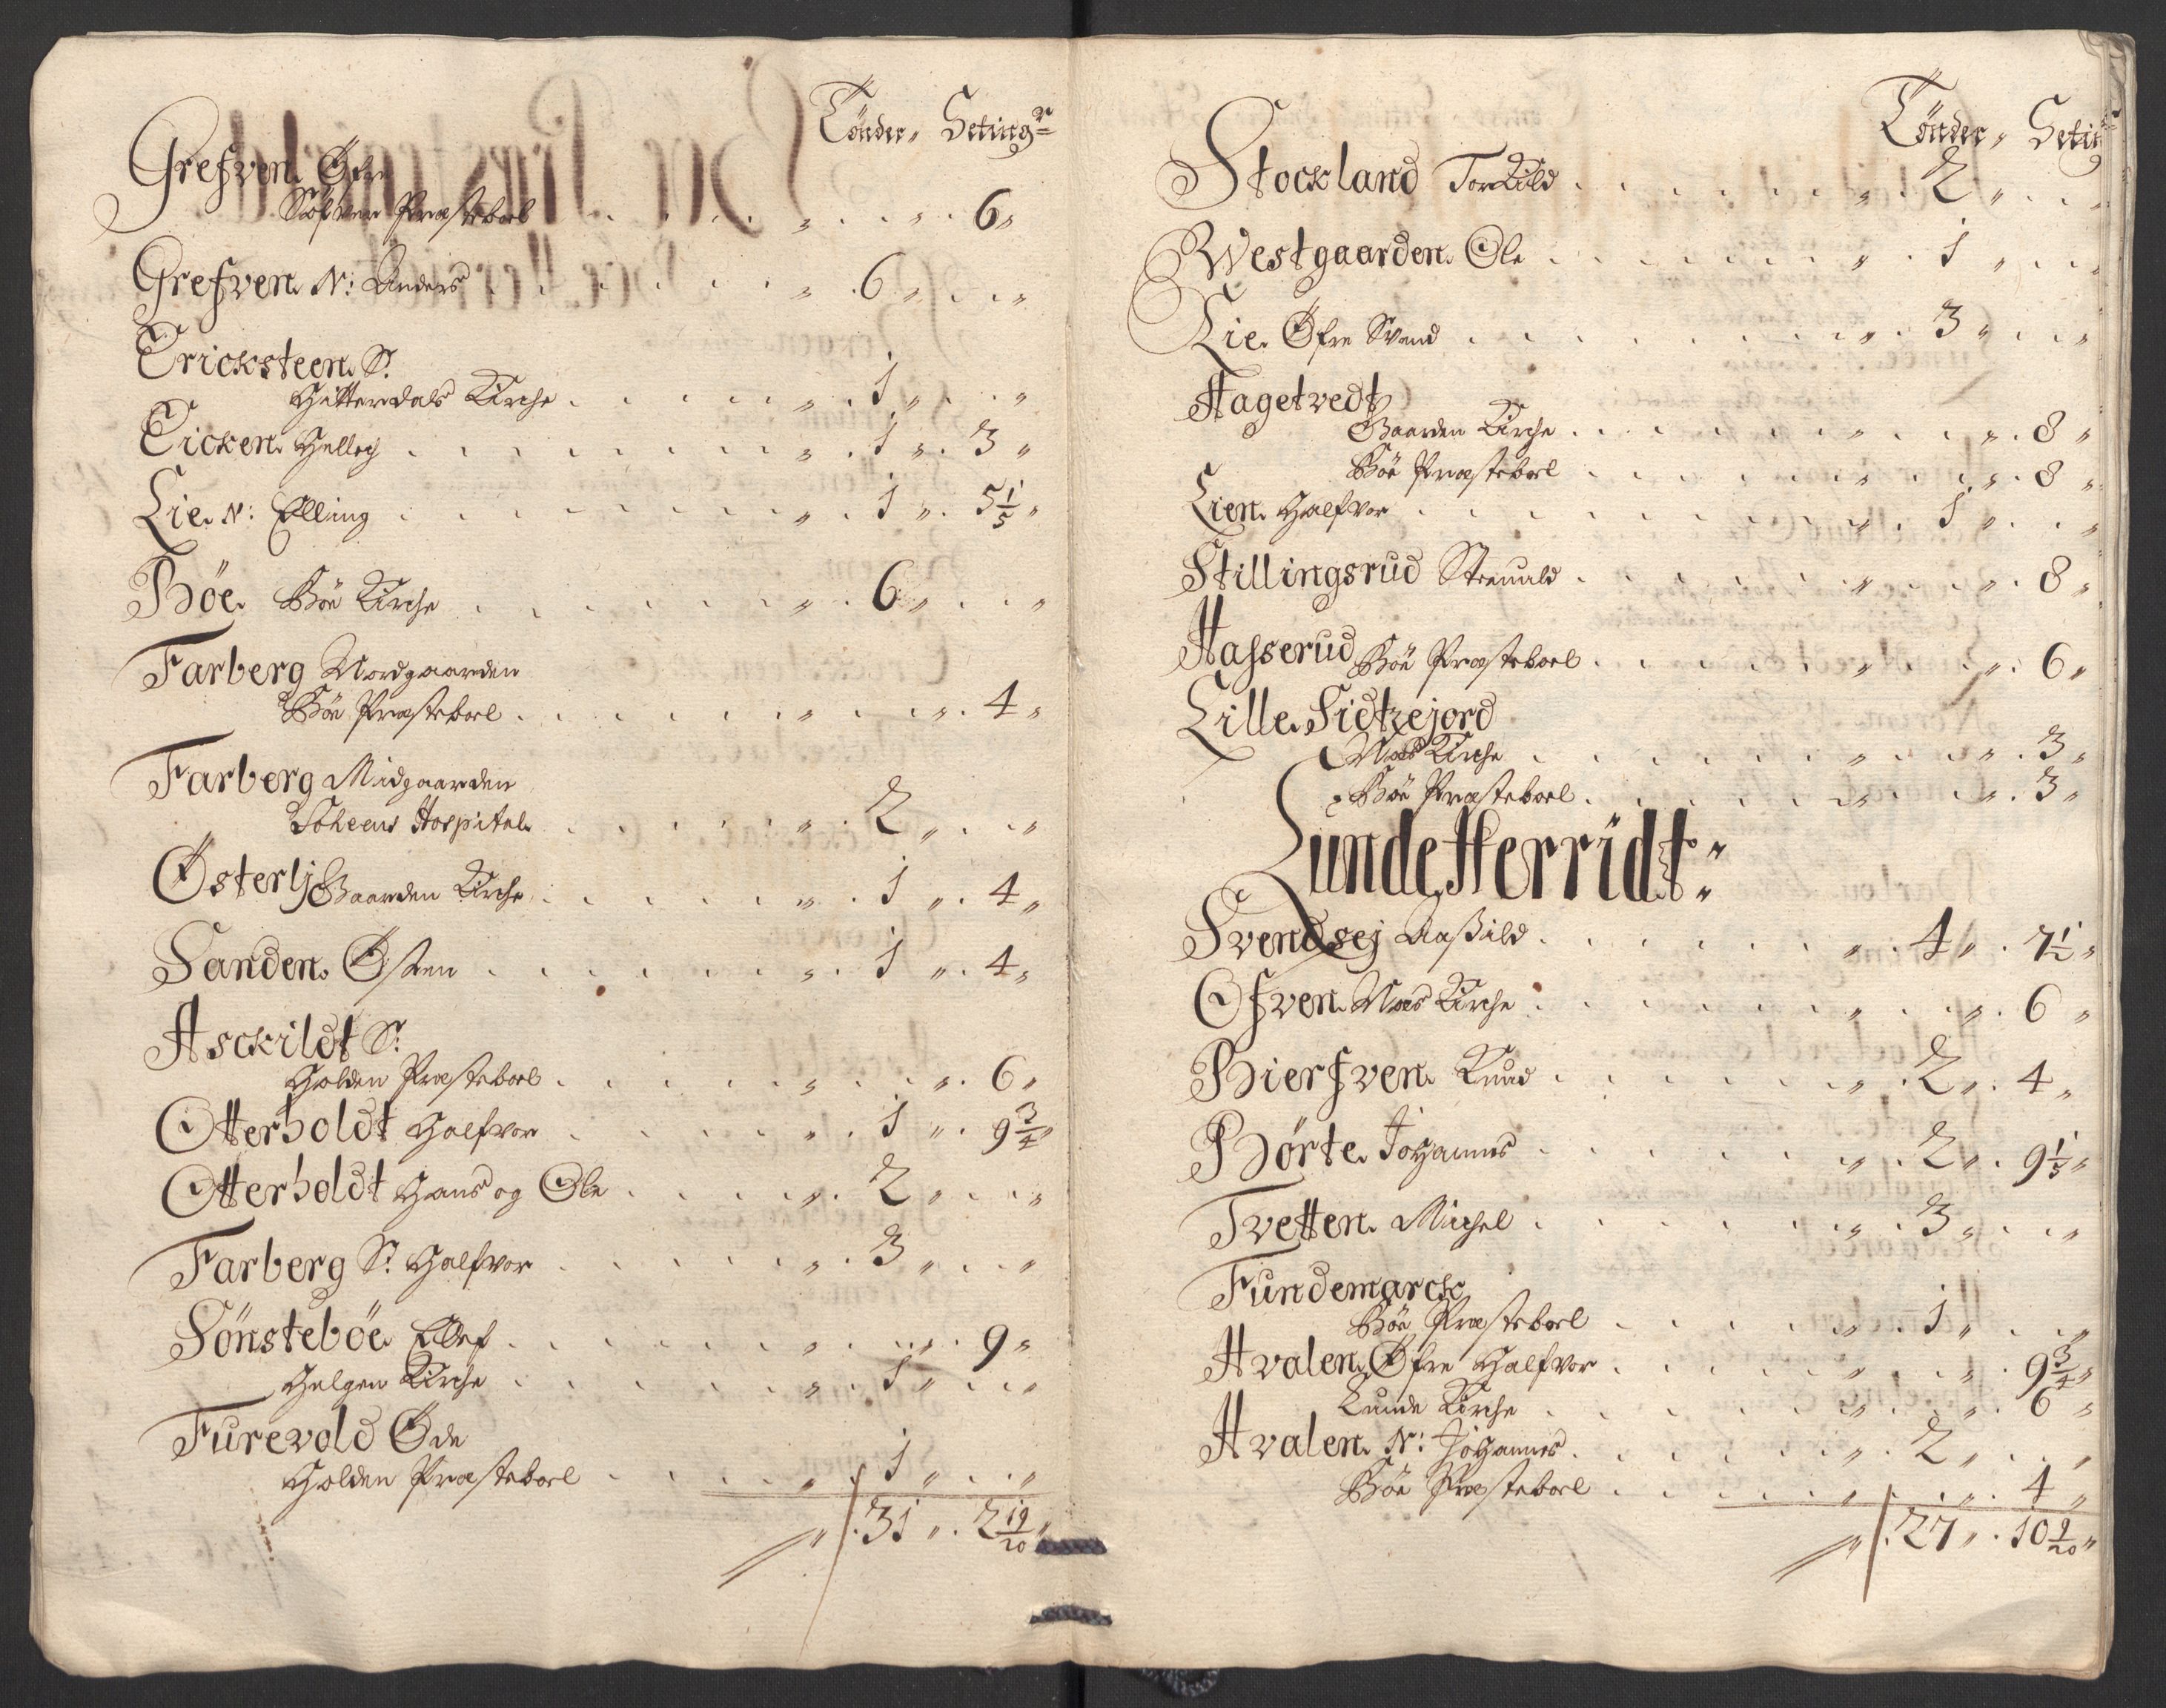 Tönder„ Setingr
Grefven Øfre
Præsteboel . . . „ . . „ . 6„
Grefven N: Anders . . . „ . 6 „ . . „
Ericksteen S:
Hitterdals Kirche . . . „ . 1 „ . . „
Eicken Hellej . . . „ . 1 „ . 3 „
Lie N: Elling . . . „ . 1 „ . 5 1/5 „
Böe Böe Kirche . . . „ . 6 „ . . „
Farberg Nordgaarden
Böe Præsteboel . . . „ . . „ . 4 „
Farberg Midgaarden
Hospital . . . „ . 2 „ . . „
Østerlj Gaarden Kirche . . . „ . 1 „ . 4 „
Sanden Østen . . . „ . 1 „ . 4 „
Asckildt S:
Holden Præsteboel . . . „ . . „ . 6 „
Otterholdt Halfvor . . . „ . 1 „ . 9 3/4 „
Otterholdt Hans og Ole . . . „ . 2 „ . . „
Farberg S: Halfvor . . . „ . 3 „ . . „
Sönsteböe Ellef . . . „ . . „ . 9 „
Helgen Kirche . . . „ . 1 „ . . „
Furevold Øde
Holden Præsteboel . . . „ . 1 „ . . „
„ . 31 „ . 2 19/20 „
Tönder„ Seting
Stockland Torkild . . . „ . 2 „ . . „
Westgaarden Ole . . . „ . 1 „ . . „
Lie Øfre Svend . . . „ . 3 „ . . „
Hagetvedt
Gaarden Kirche . . . „ . . „ . 8 „
Böe Præsteboel . . . „ . . „ . 8 „
Lien Halfvor . . . „ . 1 „ . . „
Stillingsrud . . . „ . . „ . 8 „
Hasserud Böe Præsteboel . . . „ . . „ . 6 „
Lille Sidtzejord
Næs Kirche . . . „ . . „ . 3 „
Böe Præsteboel . . . „ . . „ . 3 „
Lunde Herridt:
Svendsej Aaßild . . . „ . 4 „ . 7 1/2 „
Ofven Næs Kirche . . . „ . . „ . 6 „
Bierfven Knud . . . „ . 2 „ . 4 „
Börte Johannes . . . „ . 2 „ . 9 1/5 „
Tvetten Michel . . . „ . 3 „ . . „
Fundemarck
Böe Præsteboel . . . „ . 1 „ . . „
Hvalen Øfre Halfvor . . . „ . . „ . 9 3/4 „
Lunde Kirche . . . „ . . „ . 6 „
Hvalen N: Johannes . . . „ . 2 „ . . „
Böe Præsteboel . . . „ . . „ . 4 „
„ . 27 „ . 10 9/20 „